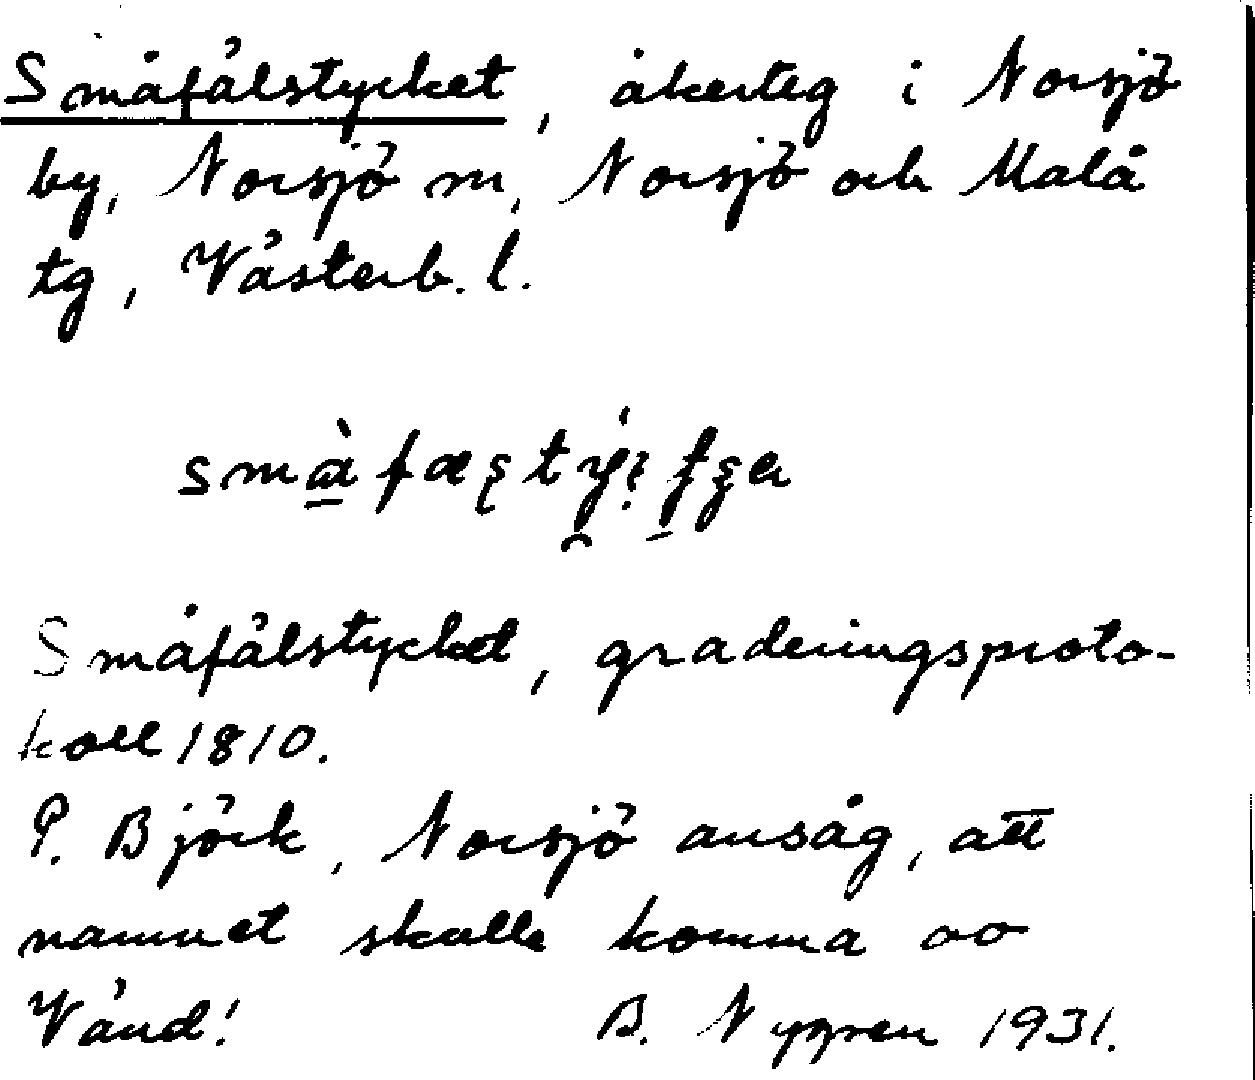 Småfälstycket, åkerteg i Norsjö
by, Norsjö sn, Norsjö och Malå
tg, Västerb. l.
Småfälstycket, graderingsproto-
koll 1810.
P. Björk, Norsjö ansåg, att
namnet skulle komma av
Vänd! B. Nygren 1931.